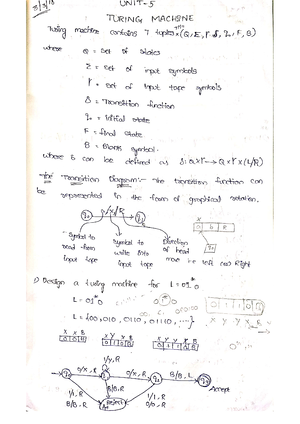 UNIT-5
TURING MACHINE
Turing machine contains 7 tuples (Q, Σ, Γ, δ, q₀, F, B)
where Q = Set of States
Σ = set of input symbols
Γ = set of input tape symbols
δ = Transition function
q₀ = initial state
F = final state
B = Blank symbol.
where δ can be defined as δ: Q×Γ → Q×Γ×(L/R)
Transition Diagram:- The transition function can
be represented in the form of graphical notation.
x/y/R
Symbol to read from input tape
Symbol to write into input tape
Direction of head move be left (or) Right
1) Design a turing machine for L = 01*0
L = 01*0
L = {00, 010, 0110, 01110, ...}
X X B
0 0 B
X Y X B
0 1 0 B
X Y Y X B
0 1 1 0 B
1/Y, R
0/X, R
0/X, R
B/B, L
B/B, R
1/1, R
B/B, R
1/1, R
0/0, R
Reject
Accept